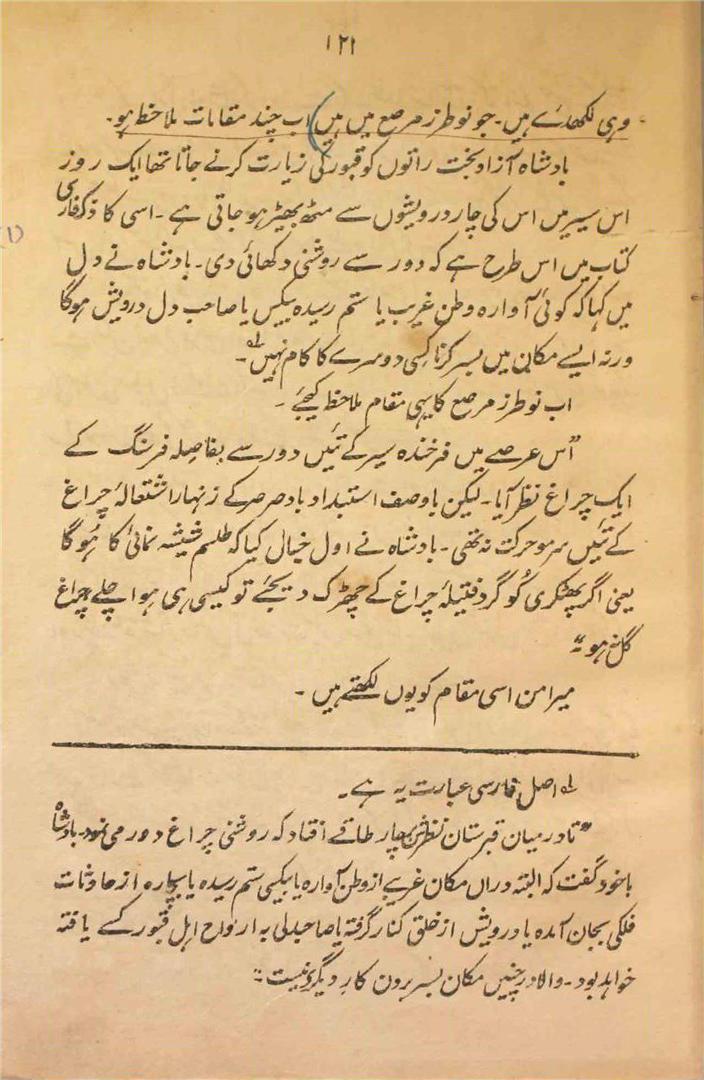 ۱۲۱
وہی لکھدئے ہیں۔ جو نوطرز مرصع میں ہیں) اب چند مقامات ملاحظہ ہو۔
بادشاہ آزاد بخت راتوں کو قبور کی زیارت کرنے جاتا تھا ایک روز
اس سیر میں اس کی چار درویشوں سے مٹھ بھیڑ ہو جاتی ہے۔ اسی کا ذکر فارسی
(۱)
کتاب میں اس طرح ہے کہ دور سے روشنی دکھائی دی۔ بادشاہ نے دل
میں کہا کہ کوئی آوارہ وطن غریب یا ستم رسیدہ بیکس یا صاحب دل درویش ہوگا
ورنہ ایسے مکان میں بسر کرنا کسی دوسرے کا کام نہیں لہ۔
اب نوطرز مرصع کا یہی مقام ملاحظہ کیجئے۔
"اُس عرصے میں فرخندہ سیر کے تئیں دور سے بفاصلہ فرسنگ کے
ایک چراغ نظر آیا۔ لیکن باوصف استبداد باد صرصر کے زنہار اشتعالۂ چراغ
کے تئیں سرمو حرکت نہ تھی۔ بادشاہ نے اول خیال کیا کہ طلسم شیشہ نمائی کا ہوگا
یعنی اگر پھٹکری کو گرد فتیلۂ چراغ کے چھڑک دیجئے تو کیسی ہی ہوا چلے چراغ
گل نہ ہو"
میرامن اسی مقام کو یوں لکھتے ہیں۔
لہ اصل فارسی عبارت یہ ہے۔
"تا درمیان قبرستان نظرش بچار طاقے افتاد کہ روشنی چراغ دور می نمود۔ بادشاہ
باخود گفت کہ البتہ دراں مکان غریبے از وطن آوارہ یا بیکسی ستم رسیدہ یا بیچارہ از حادثات
فلکی بجان آمدہ یا درویش از خلق کنار گرفتہ یا صاحبدلی بہ ارواح اہل قبور کے یافتہ
خواہد بود۔ والا در چنیں مکان بسر بردن کار دیگرے نیست"